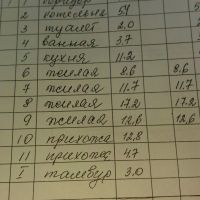 1 коридор
2 котельная 5.1
3 туалет 2.0
4 ванная 3.7
5 кухня 11.2
6 жилая 8.6 8.6
7 жилая 11.7 11.7
8 жилая 17.2 17.2
9 жилая 12,6 12,6
10 прихожа 12,8
11 прихожа 4.7
I тамбур 3.0